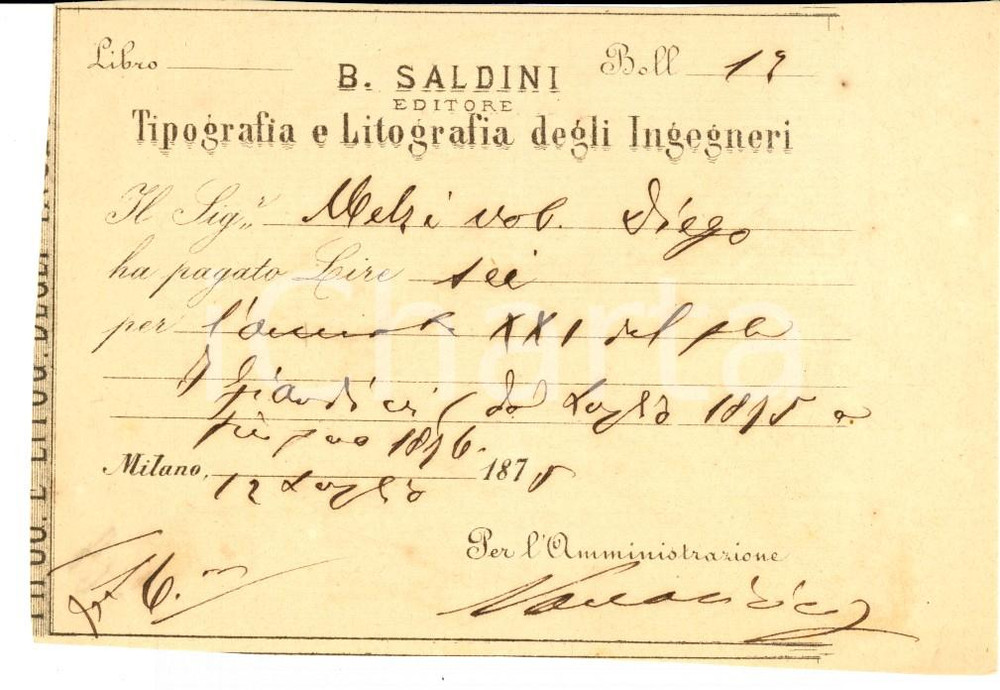 Libro
Boll 19
B. SALDINI
EDITORE
Tipografia e Litografia degli Ingegneri
Il Sig.r Melzi nob. Diego
ha pagato Lire sei
per XXI del
da Luglio 1875 a
1876.
Milano, 12 Luglio 1875
Per l'Amministrazione
6.
iCharta